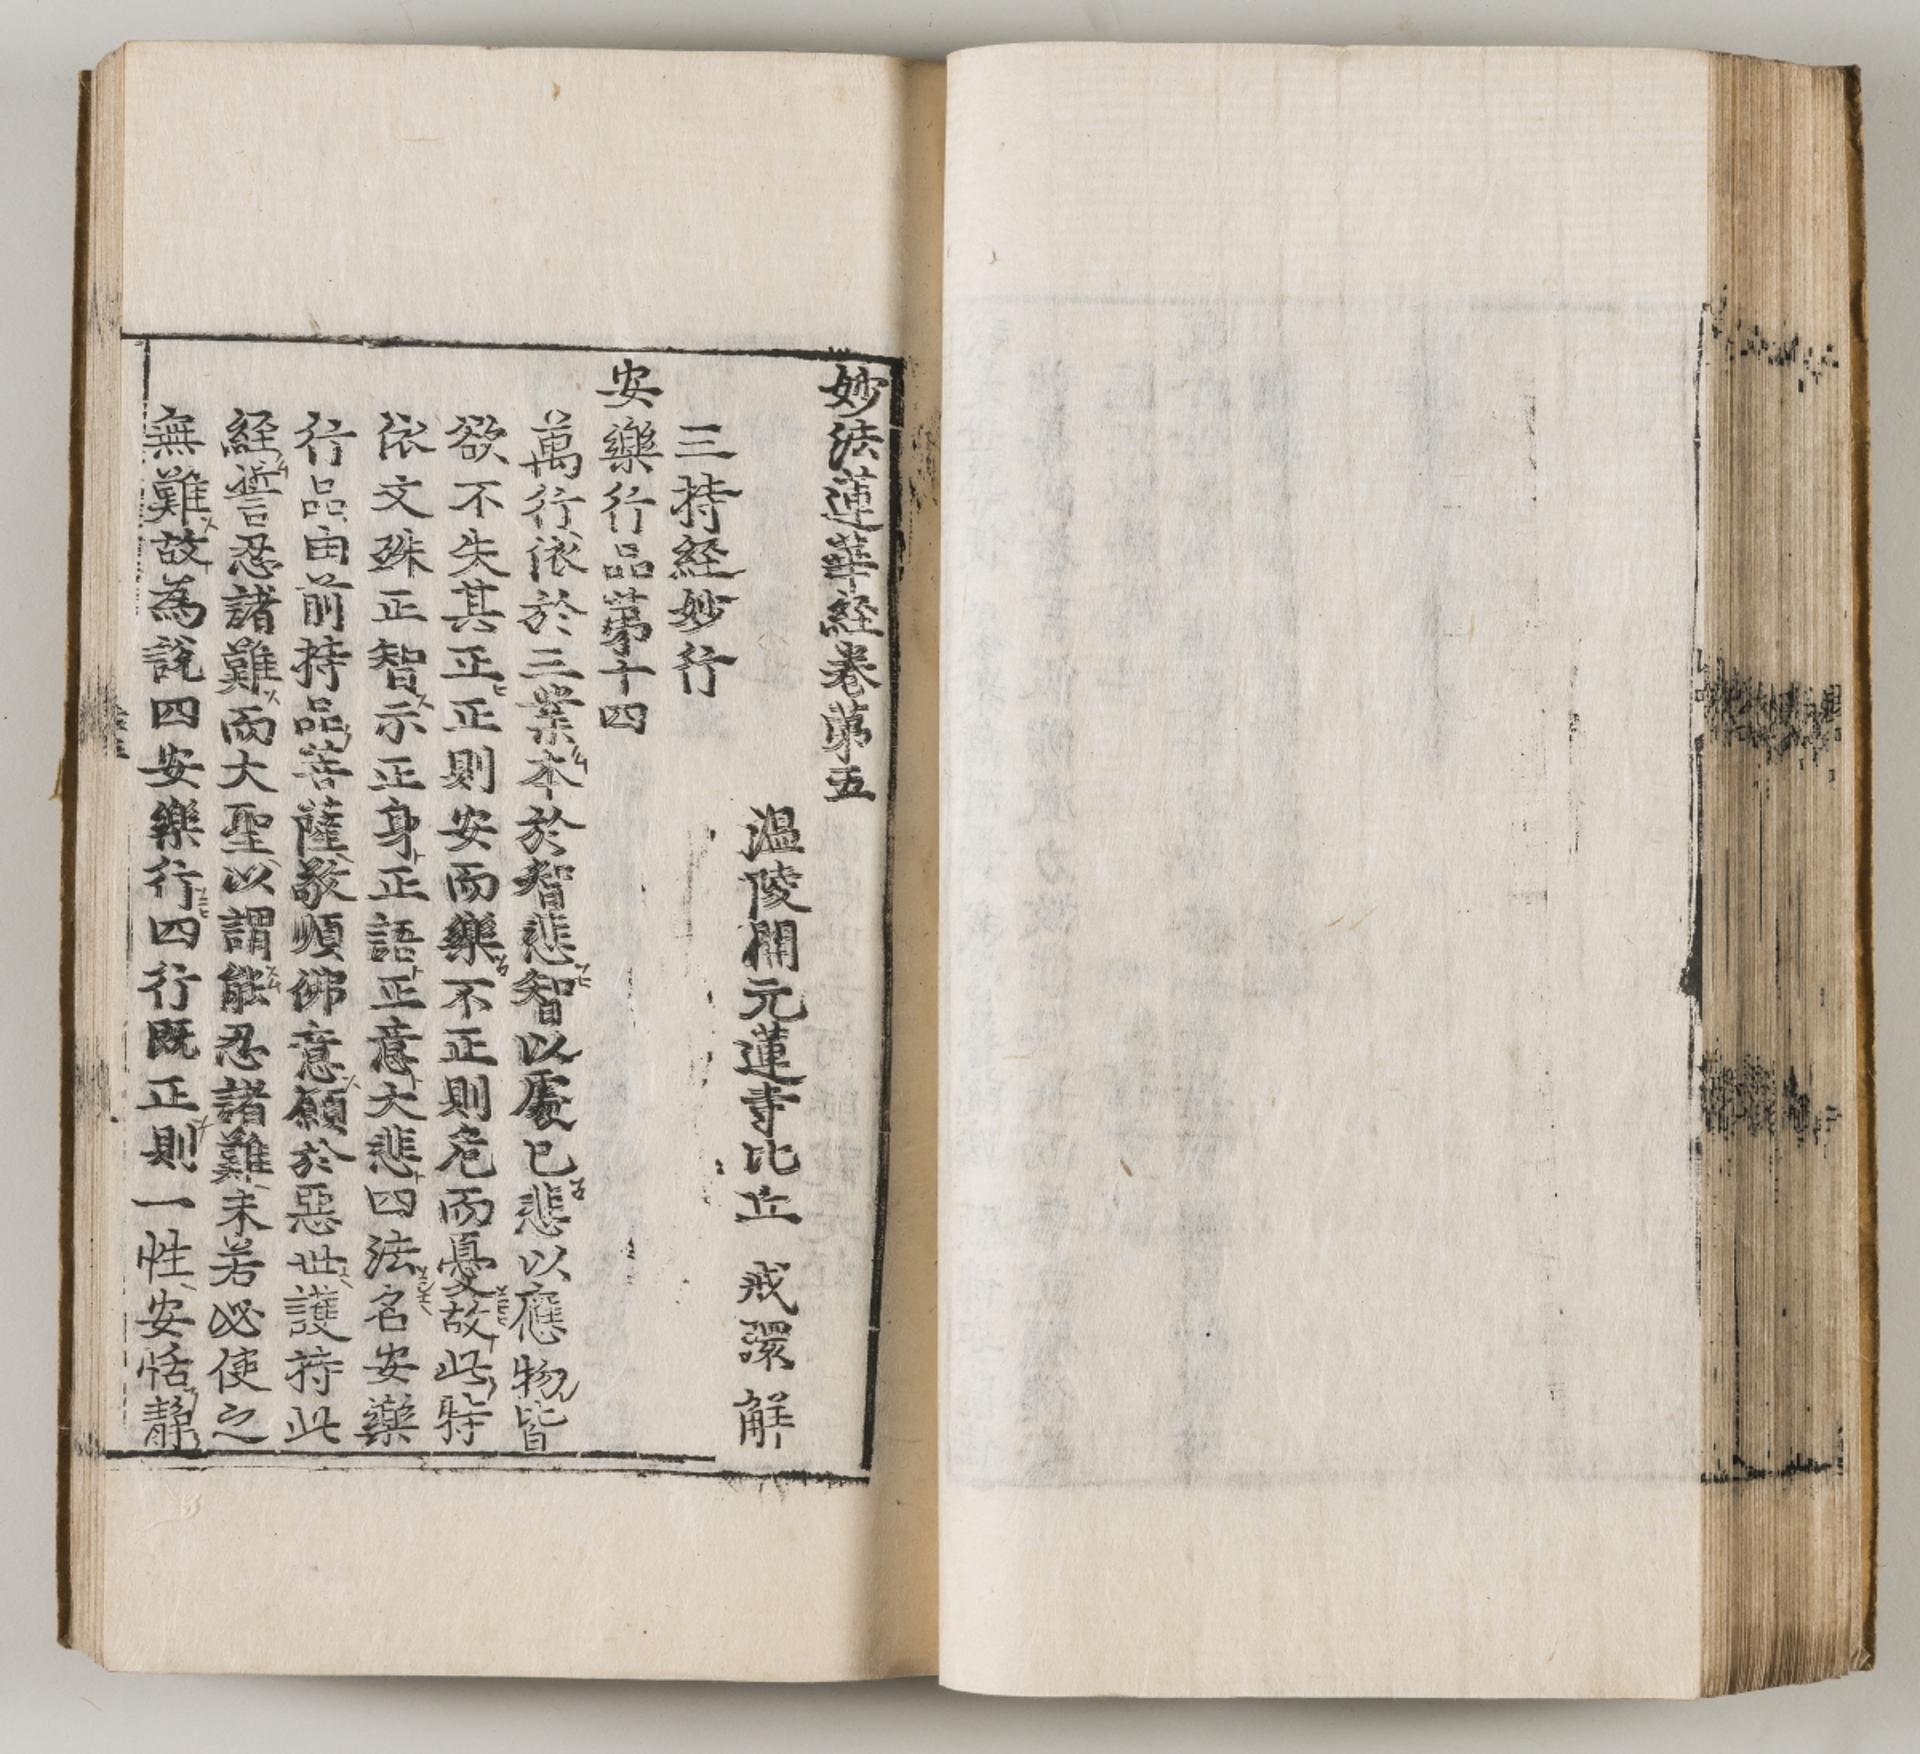 妙法蓮華経卷苐五
溫陵開元蓮寺比丘 戒環 解
三持経妙行
安樂行品苐十四
萬行依於三業本於智悲智以處已悲以應物皆
欲不失其正正則安而樂不正則危而憂故此特
依文殊正智示正身正語正意大悲四法名安樂
行品由前持品菩薩敬順佛意願於惡世護持此
経誓忍諸難而大聖以謂能忍諸難未若必使之
無難故為說四安樂行四行既正則一性安恬靜